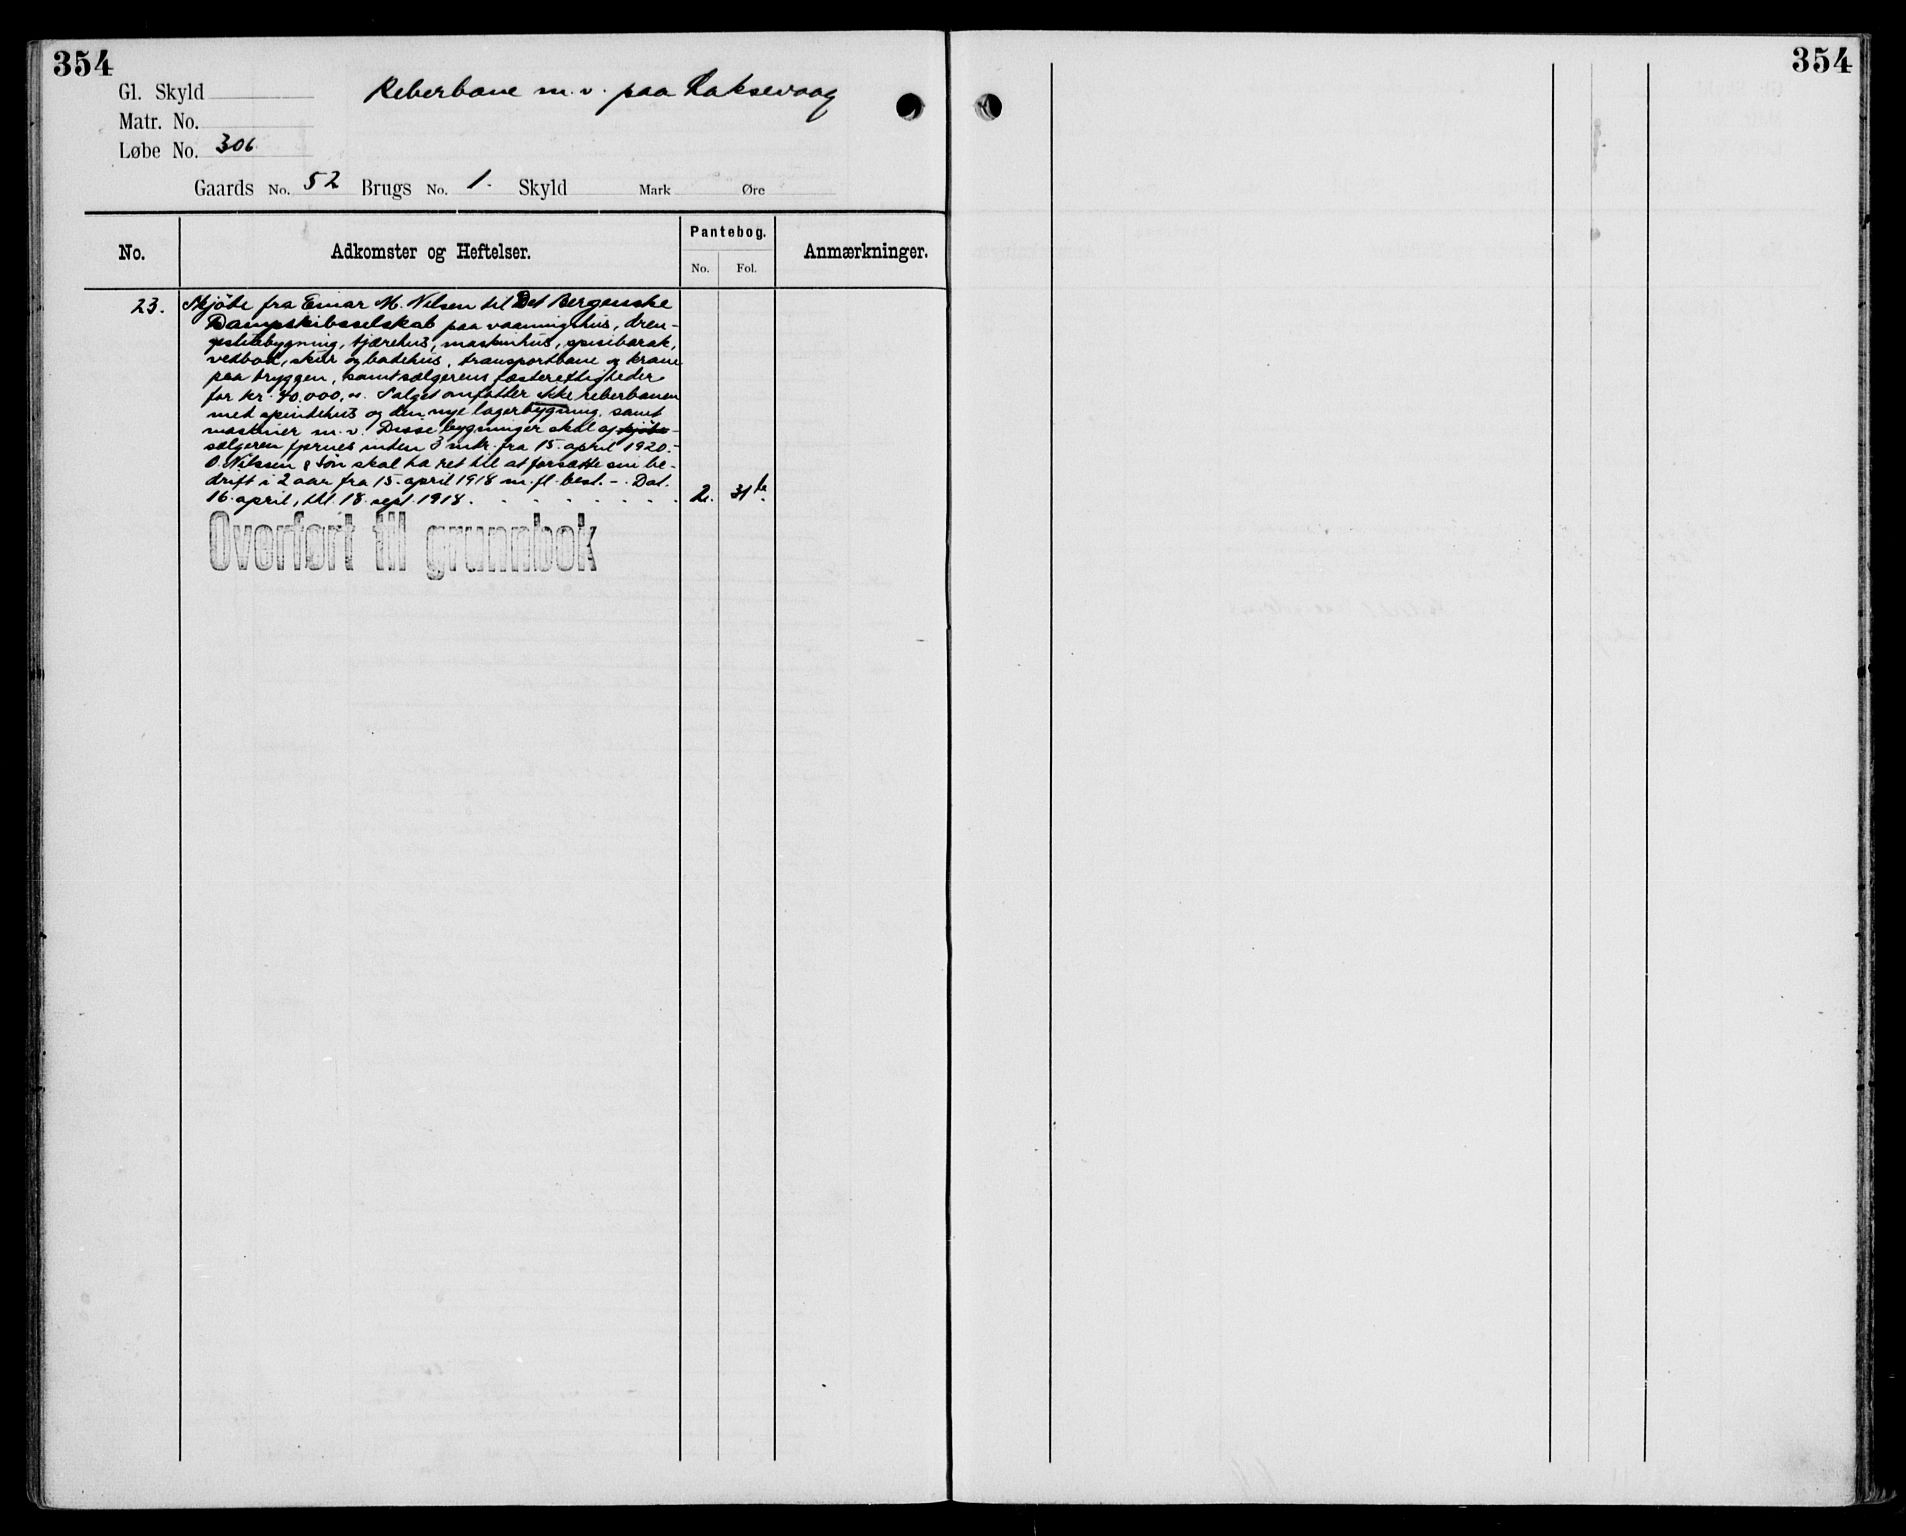 354
354
Gl. Skyld
Reberbane m.v. paa Laksevaag
Matr. No.
Løbe No. 306
Gaards No. 52 Brugs No. 1. Skyld Mark Øre
No. Adkomster og Heftelser. Pantebog. Anmærkninger.
No. Fol.
23. Skjøte fra Einar M. Nilsen til Det Bergenske
Dampskibsselskab paa vaaningshus, dren-
gestuebygning, tjærehus, maskinhus, spisebarak,
vedbod, skur og badehus, transportbane og krane
paa bryggen, samt sælgerens fæsterettigheder
for kr. 40,000,00. Salget omfatter ikke reberbanen
med spindehus og den nye lagerbygning, samt
maskiner m.v. Disse bygninger skal af skjøte-
sælgeren fjernes inden 3 mtr. fra 15. april 1920.-
O. Nilssen & Søn skal ha ret til at forsætte sin be-
drift i 2 aar fra 15. april 1918 m. fl. best. -. Dat.
16. april, thl. 18. sept. 1918. 2. 31b.
Overført til grunnbok